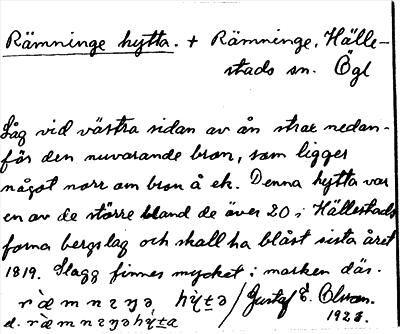 Rämninge hytta. + Rämninge, Hälle-
stads sn. Ögl
Låg vid västra sidan av ån strax nedan-
för den nuvarande bron, som ligger
något norr om bron å ek. Denna hytta var
en av de större bland de över 20 i Hällestads
forna bergslag och skall ha blåst sista året
1819. Slagg finnes mycket i marken där.
Gustaf E.
d.
1928.